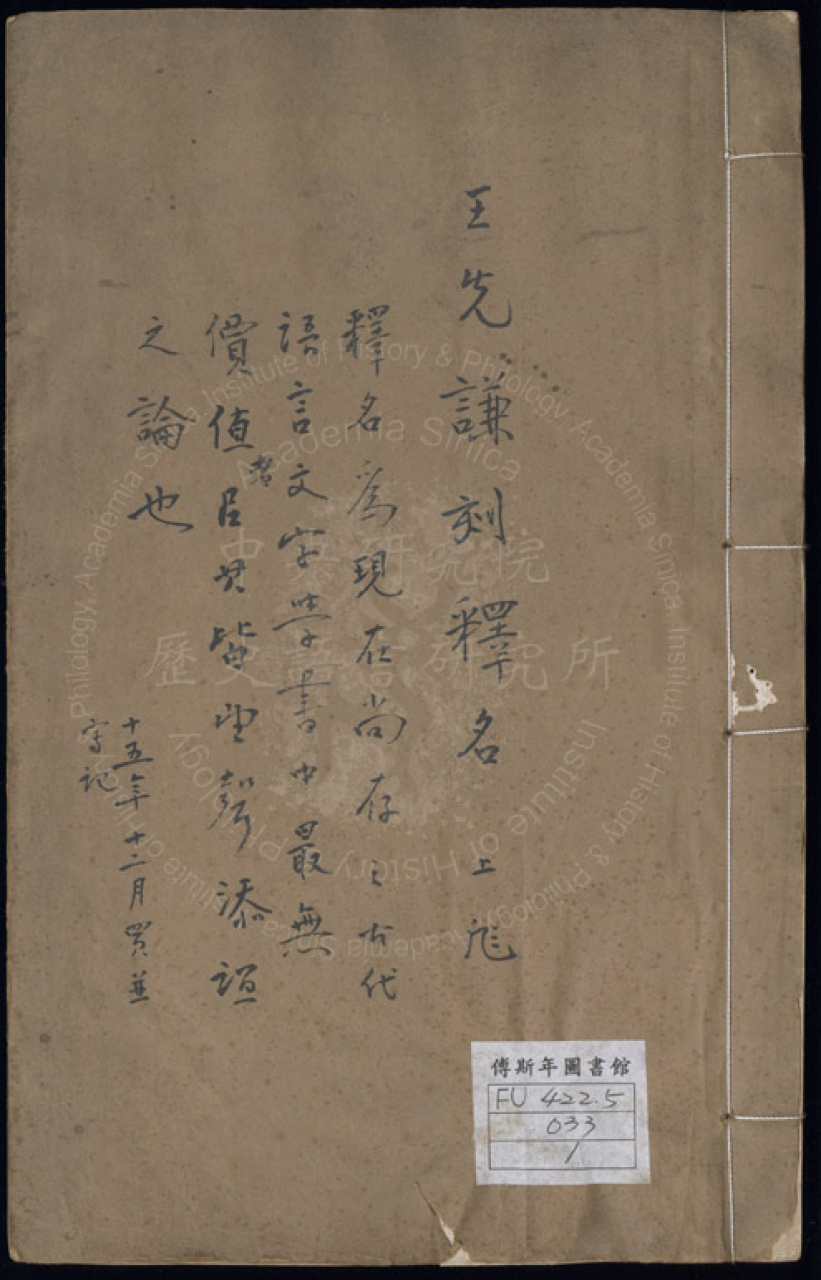 王先謙刻釋名 上
釋名爲現在尚存之古代
語言文字學書中最無
價值者㠯其皆望聲添誼
之論也
十五年十二月買並
記
傅斯年圖書館
FU 422.5
033
1
中央研究院
歷史語言研究所
Institute of History & Philology, Academia Sinica